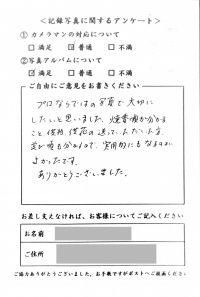 ＜記録写真に関するアンケート＞
① カメラマンの対応について
□ 満足 ☑ 普通 □ 不満
②写真アルバムについて
☑ 満足 □ 普通 □ 不満
ご自由にご意見をお書きください
プロならではの写真で大切に
したいと思いました。焼香順が分かる
こと、供物、供花の送っていただいた方、
芳が分かるので、実用的にもなるのが
よかったです。
ありがとうございました。
お差し支えなければ、お客様についてご記入ください
お名前
ご住所
ご協力ありがとうございました。お手数ですがポストへご投函ください